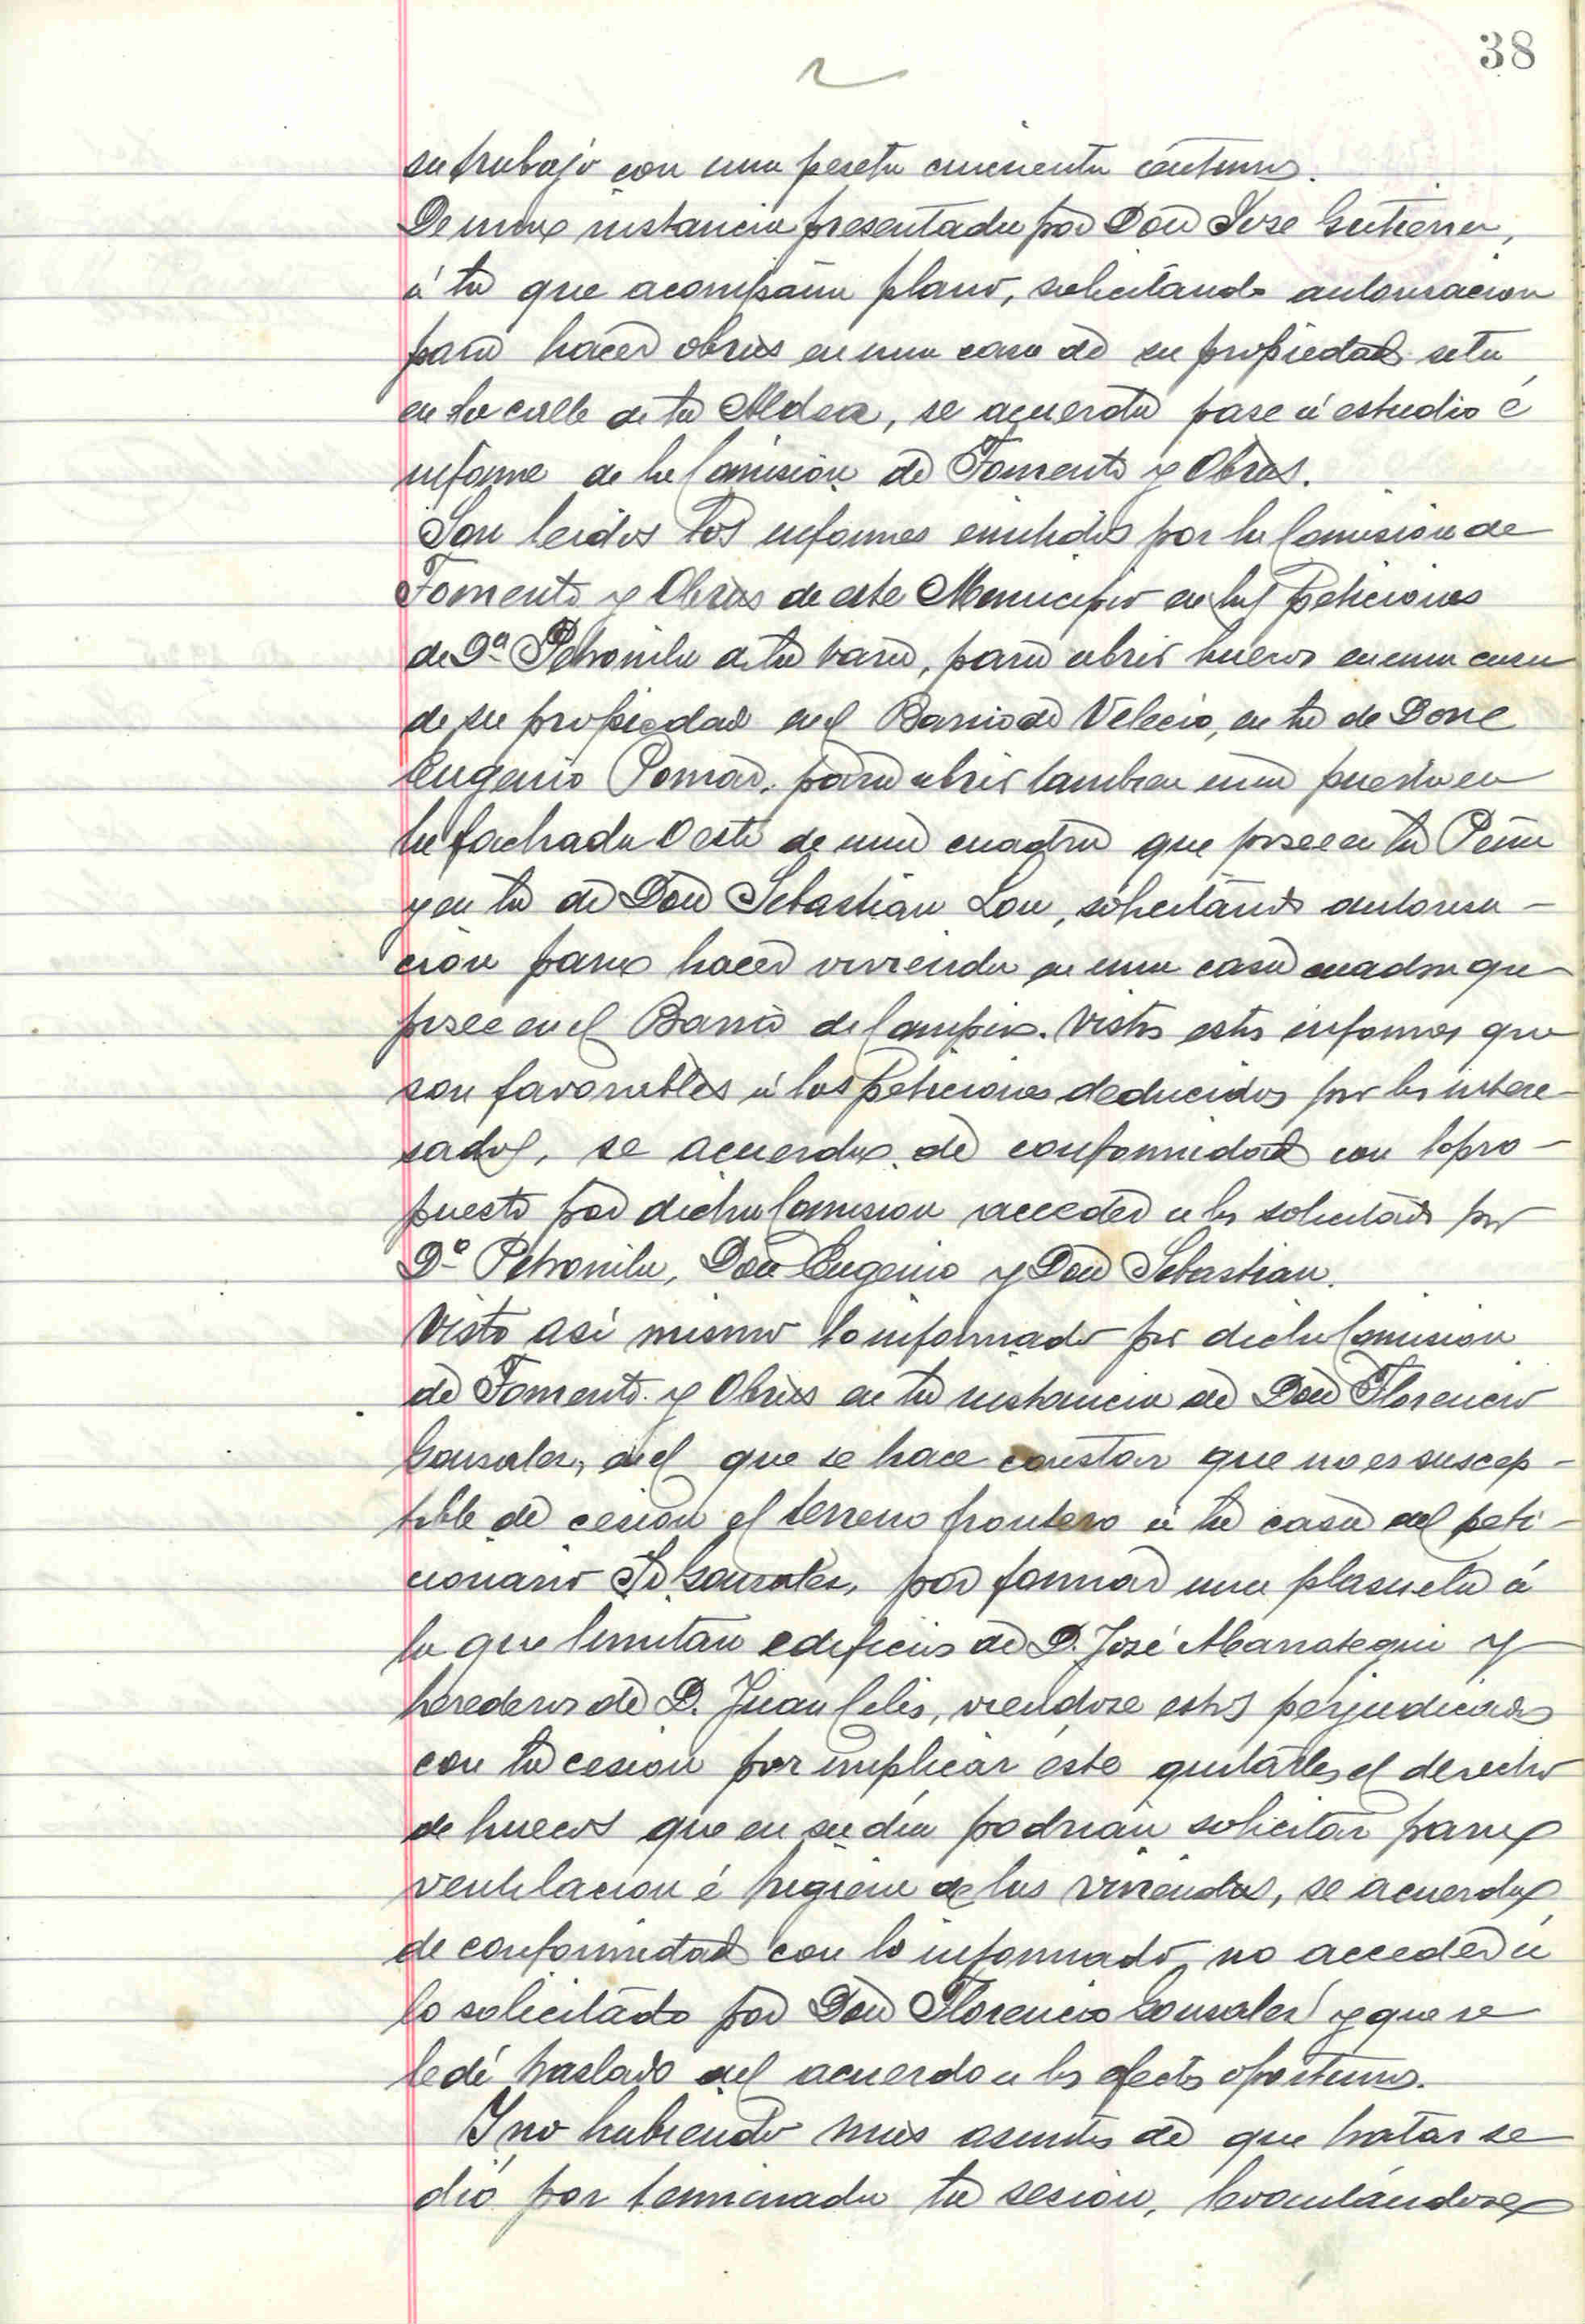 38
su trabajo con una peseta cincuenta céntimos.
De una instancia presentada por Don Jose Gutierrez,
á la que acompaña plano, solicitando autorizacion
para hacer obras en una casa de su propiedad sita
en la calle de la Aldea, se acuerda pase á estudio é
informe de la Comisión de Fomento y Obras.
Son leidos los informes emitidos por la Comision de
Fomento y Obras de este Municipio en las peticiones
de Dª Petronila de la Vara, para abrir huecos en una casa
de su propiedad en el Barrio de Velecio, en la de Don
Eugenio Pomar, para abrir tambien una puerta en
la fachada Oeste de una cuadra que posee en la Peña
y en la de Don Sebastian Lou, solicitando autoriza-
ción para hacer vivienda en una casa cuadra que
posee en el Barrio de Campix. Vistos estos informes que
son favorables á las peticiones deducidas por los intere-
sados, se acuerda de conformidad con lo pro-
puesto por dicha Comision acceder a lo solicitado por
Dª Petronila, Don Eugenio y Don Sebastian.
Visto así mismo lo informado por dicha Comision
de Fomento y Obras en la instancia de Don Florencio
Gonzalez, en el que se hace constar que no es suscep-
tible de cesion el terreno frontero á la casa del peti-
cionario Sr Gonzalez, por formar una plazuela á
la que limitan edificios de D. José Marrategui y
herederos de D. Juan Celis, viendose estos perjudicados
con la cesion por implicar esto quitarles el derecho
de huecos que en su dia podrian solicitar para
ventilacion é higiene de las viviendas, se acuerda
de conformidad con lo informado no acceder á
lo solicitado por Don Florencio Gonzalez y que se
le dé traslado del acuerdo a los efectos oportunos.
Y no habiendo mas asuntos de que tratar se
dió por terminada la sesion, levantándose